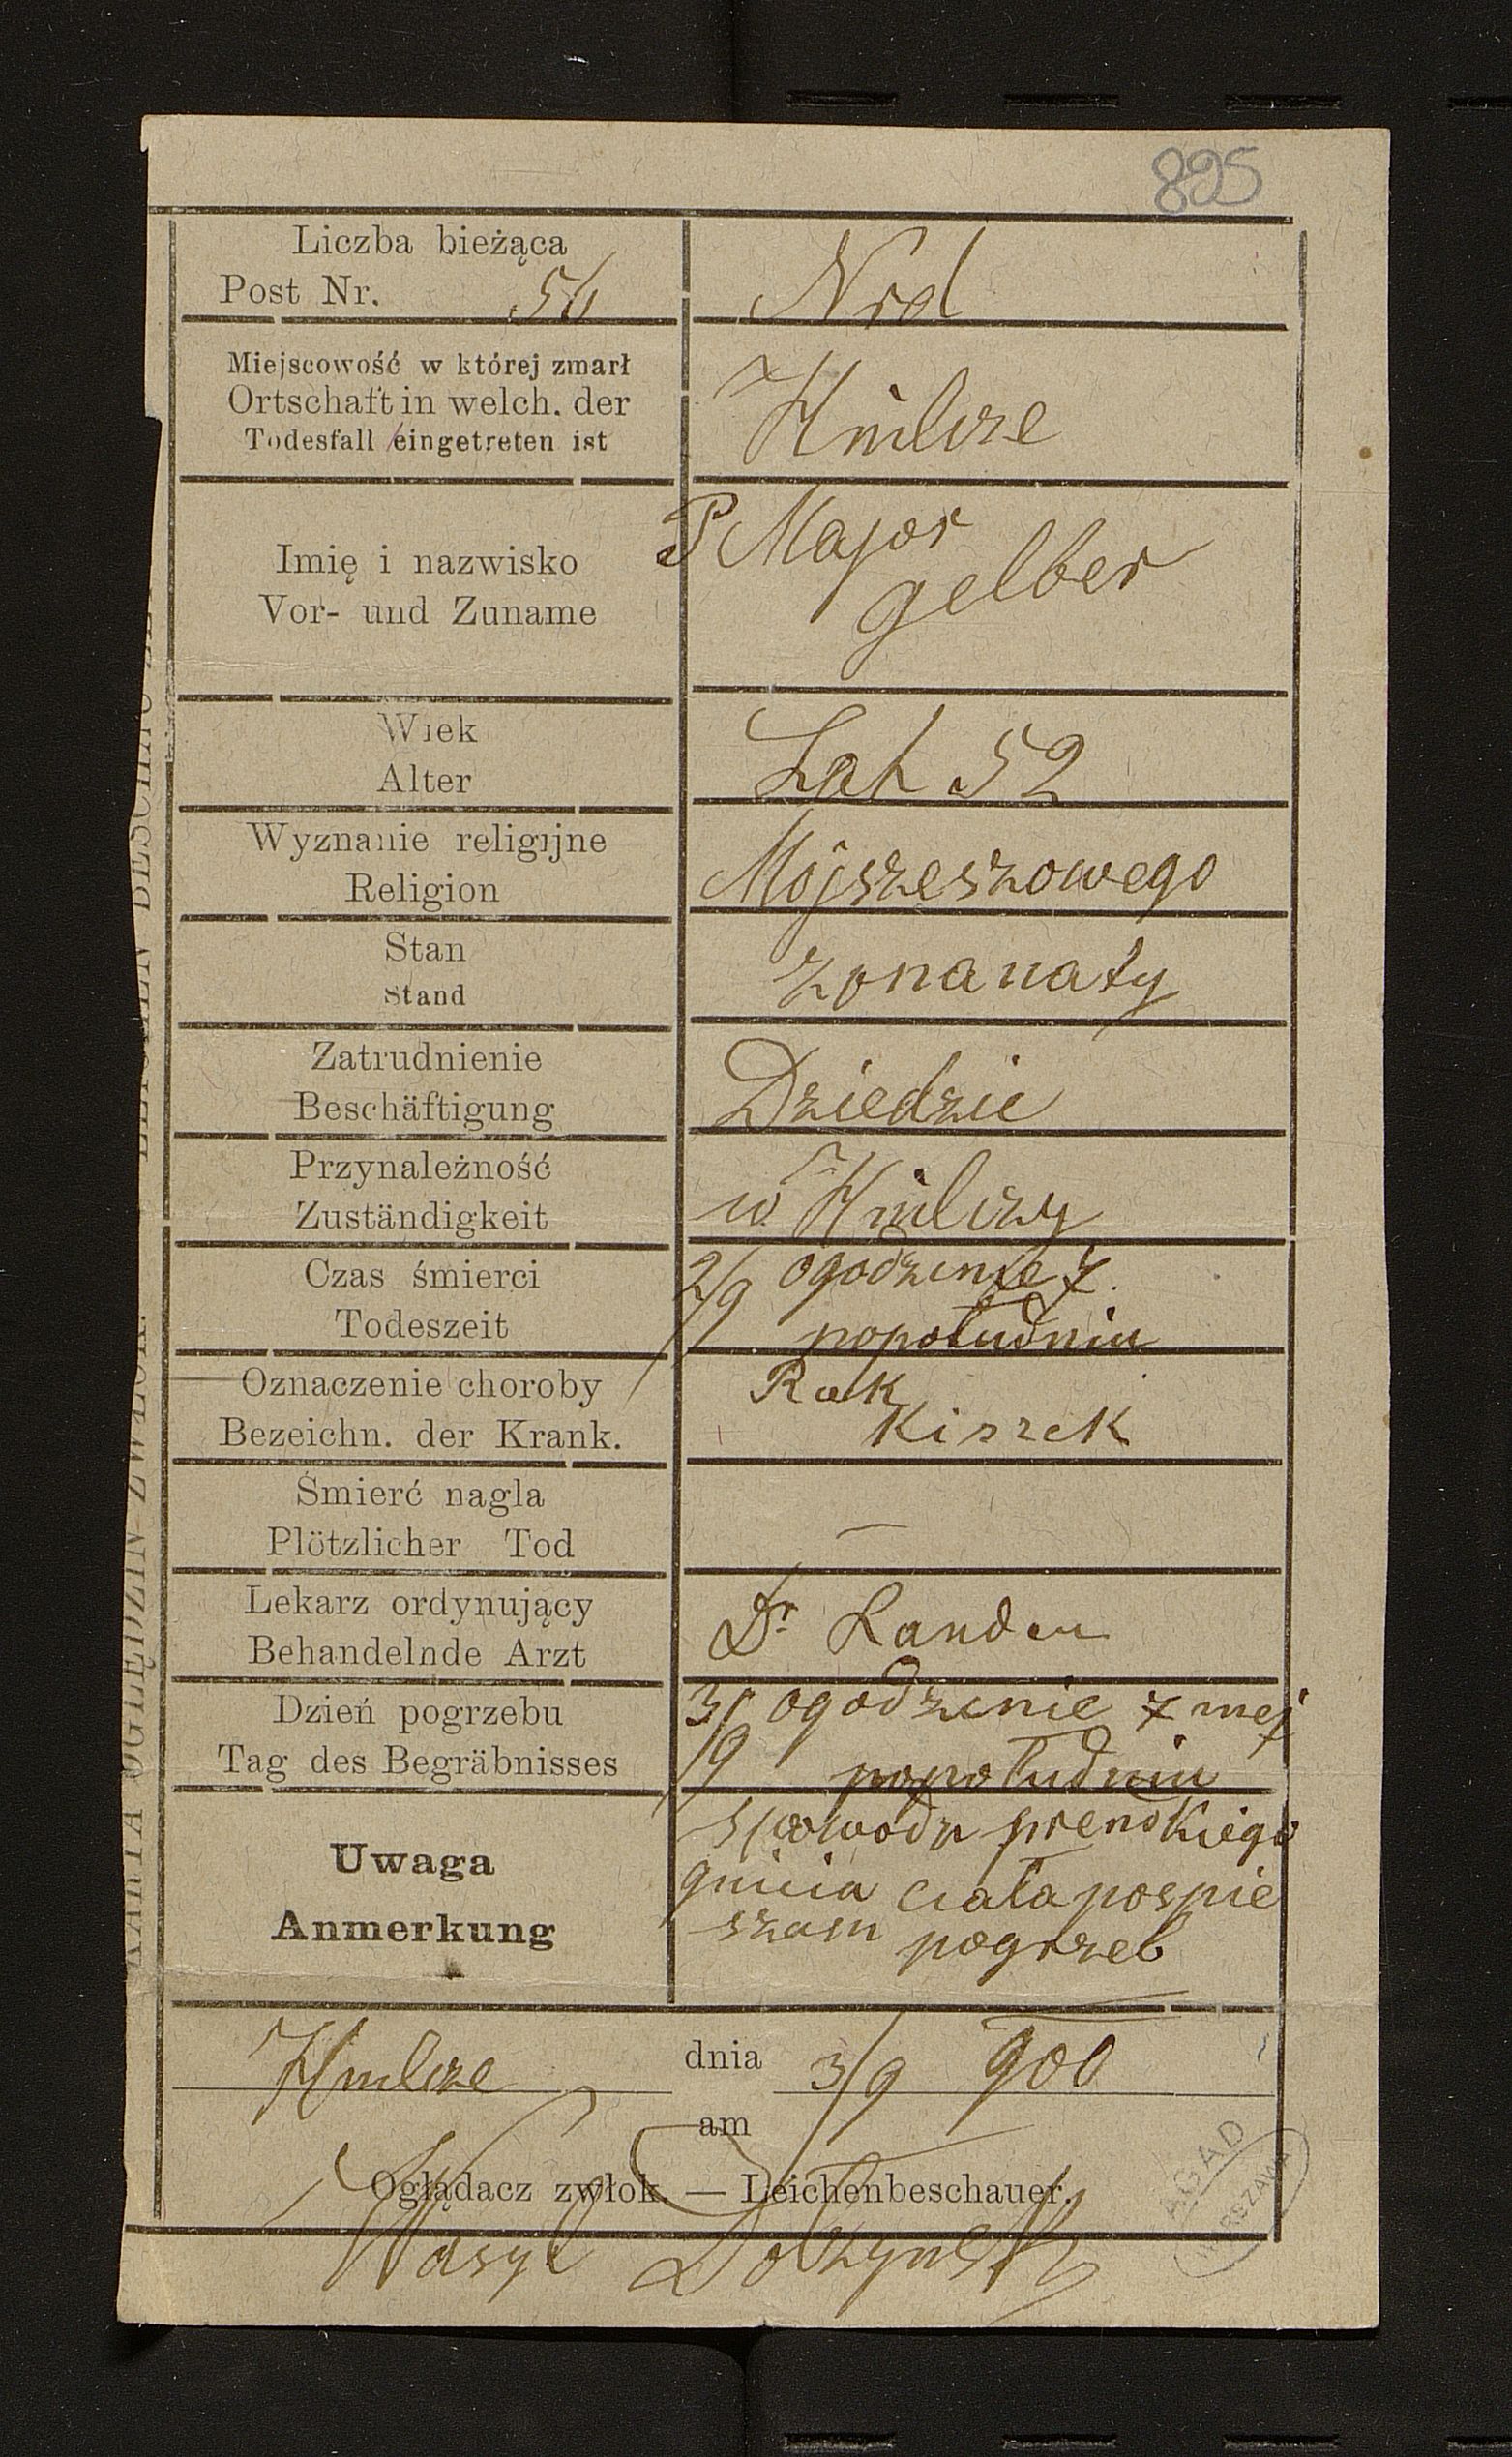 825
Liczba bieżąca
Post Nr. 56 Nrd
Miejscowość w której zmarł
Ortschaft in welch. der
Todesfall eingetreten ist
Hmilcze
Imię i nazwisko
Vor- und Zuname
P Major
gelber
Wiek
Alter
Lat 52
Wyznanie religijne
Religion
Mojszeszowego
Stan
Stand
zonanaty
Zatrudnienie
Beschäftigung
Dziedzic
Przynależność
Zuständigkeit
w Hmilczy
Czas śmierci
Todeszeit
2/9 ogodzinie 7.
popołudniu
Oznaczenie choroby
Bezeichn. der Krank.
Rak
Kiszek
Śmierć nagla
Plötzlicher Tod
—
Lekarz ordynujący
Behandelnde Arzt
Dr Landau
Dzień pogrzebu
Tag des Begräbnisses
3/9 ogodzinie 7 mej
popołudniu
Uwaga
Anmerkung
spowodu prendkiego
gnicia ciała pospie
szam pogrzeb
Hmilcze dnia 3/9 900
am
Oglądacz zwłok. — Leichenbeschauer.
Wasyl
KARTA OGLĘDZIN ZWŁOK.
AGAD
WARSZAWA